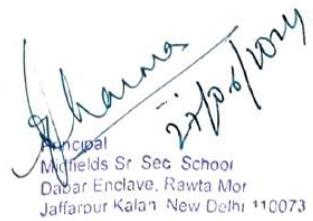 Sharma
27/06/2024
Principal
Midfields Sr Sec School
Dabar Enclave, Rawta Mor
Jaffarpur Kalan New Delhi 110073